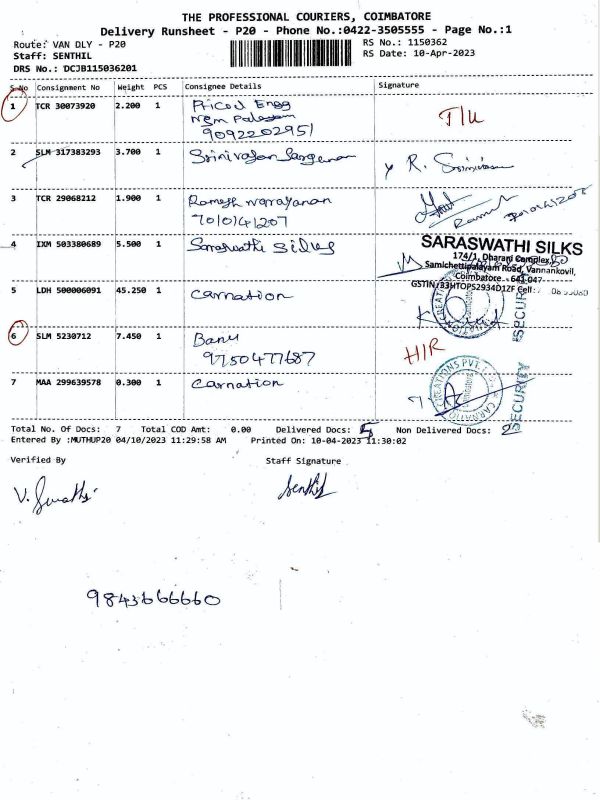 THE PROFESSIONAL COURIERS, COIMBATORE
Delivery Runsheet - P20 - Phone No.:0422-3505555 - Page No.:1
Route: VAN DLY - P20
RS No.: 1150362
Staff: SENTHIL
RS Date: 10-Apr-2023
DRS No.: DCJB115036201
S.No Consignment No Weight PCS Consignee Details Signature
1 TCR 30073920 2.200 1 Pricol Engg
9092202951
T/U
2 SLM 317383293 3.700 1 Srinivasan
R. Srinivasan
3 TCR 29068212 1.900 1 Ramesh narayanan
7010141207
4 IXM 503380689 5.500 1 Saraswathi Silks
SARASWATHI SILKS
174/1, Dharani Complex,
Samichettipalayam Road, Vannankovil,
Coimbatore - 641 047
GSTIN:33HTOPS2934D1ZF Cell:
5 LDH 500006091 45.250 1 Carnation
SECURITY
6 SLM 5230712 7.450 1 Banu
9750477687
H/R
7 MAA 299639578 0.300 1 Carnation
CREATIONS PVT. CARNATION
SECURITY
Total No. Of Docs: 7 Total COD Amt: 0.00 Delivered Docs: 5 Non Delivered Docs: 2
Entered By :MUTHUP20 04/10/2023 11:29:58 AM Printed On: 10-04-2023 11:30:02
Verified By Staff Signature
Senthil
9843666660